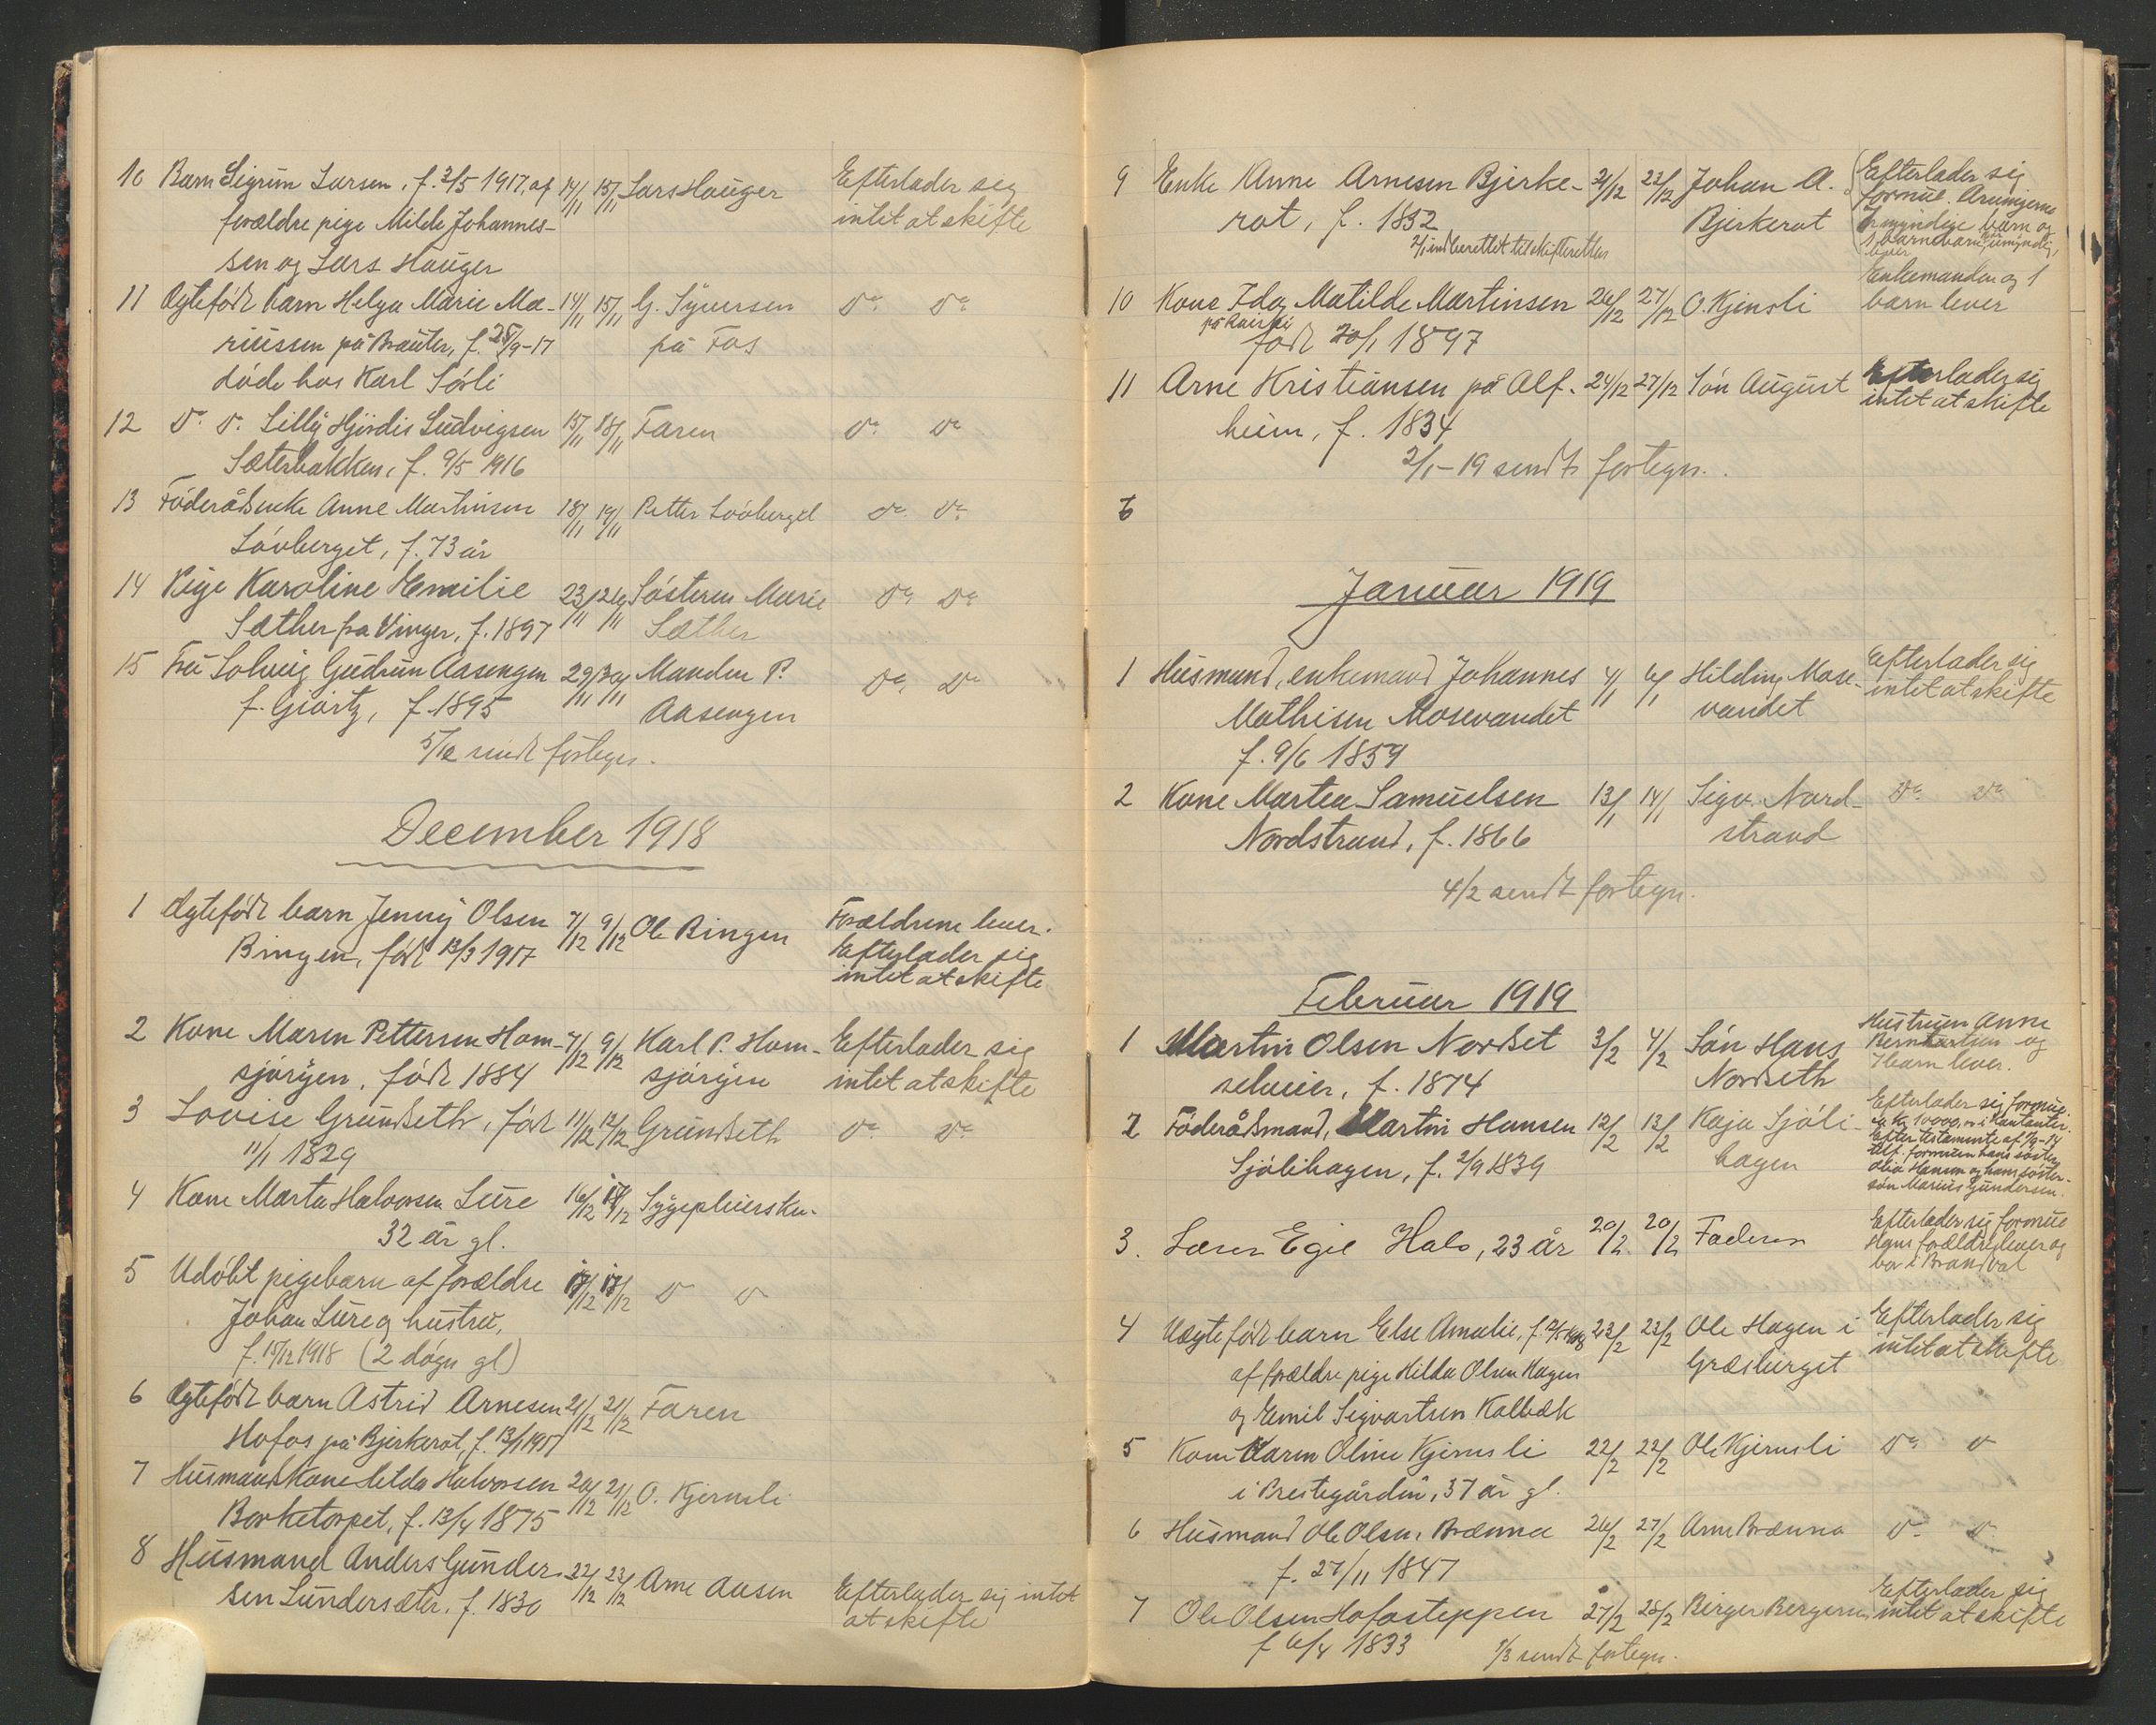 10 Barn Sigrun Larsen, f. 3/5 1917, af 14/11 15/11 Lars Hauger Efterlader sig
forældre pige Milda Johannes- intet at skifte
sen og Lars Hauger
11 Ægtefødt barn Helga Marie Ma- 14/11 15/11 G. Syversen Do Do
riussen på Brauter, f. 28/9-17 på Fos
døde hos Karl Sørli
12 Do Do Lilly Hjørdis Ludvigsen 15/11 18/11 Faren Do Do
Sæterbakken, f. 9/5 1916
13 Føderådsenke Anne Martinsen 18/11 19/11 Petter Løvberget Do Do
Løvberget, f. 73 år
14 Pige Karoline Emilie 23/11 26/11 Søsteren Marie Do Do
Sæther fra Vinger, f. 1897 Sæther
15 Fru Solveig Gudrun Aasengen 29/11 30/11 Manden P. Do Do
f. Giørtz, f. 1895 Aasengen
5/12 sendt fortegn.
December 1918
1 Ægtefødt barn Jenny Olsen 7/12 9/12 Ole Bingen Forældrene lever.
Bingen, født 13/3 1917 Efterlader sig
intet at skifte
2 Kone Maren Pettersen Hom- 7/12 9/12 Karl P. Hom- Efterlader sig
sjøryen, født 1884 sjøryen intet at skifte
3 Lovise Grundseth, født 11/12 12/12 Grundseth Do Do
11/1 1829
4 Kone Marta Halvorsen Lure 16/12 17/12 Sygepleiersken
32 år gl.
5 Udøbt pigebarn af forældre 17/12 17/12 Do Do
Johan Lure og hustru,
f. 15/12 1918 (2 døgn gl)
6 Ægtefødt barn Astrid Arnesen 21/12 21/12 Faren
Hofos på Bjerkerot, f. 13/1 1917
7 Husmandskone Helda Halvorsen 20/12 21/12 O. Kjernsli
Borketorpet, f. 13/4 1875
8 Husmand Anders Gunder- 22/12 23/12 Arne Aasen Efterlader sig intet
sen Lundersæter, f. 1830 at skifte
9 Enke Anne Arnesen Bjerke- 21/12 23/12 Johan A. Efterlader sig
rot, f. 1852 Bjerkerot formue. Arvingerne
2/1 indberettet til skifteretten myndige børn og
1 barnebarn umyndig,
lever
10 Kone Ida Matilde Martinsen 26/12 27/12 O. Kjernsli Enkemanden og 1
født 20/1 1897 barn lever
11 Arne Kristiansen på Alf- 24/12 27/12 Søn August Efterlader sig
heim, f. 1834 intet at skifte
2/1-19 sendt fortegn.
6
Januar 1919
1 Husmand, enkemand Johannes 4/1 6/1 Hilding Mose- Efterlader sig
Mathisen Mosevandet vandet intet at skifte
f. 9/6 1859
2 Kone Martea Samuelsen 13/1 14/1 Sigv. Nord- Do Do
Nordstrand, f. 1866 strand
4/2 sendt fortegn.
Februar 1919
1 Martin Olsen Nordset 3/2 4/2 Søn Hans Hustruen Anne
selveier, f. 1874 Nordseth Berntsen og
7 barn lever.
2 Føderådsmand, Martin Hansen 12/2 13/2 Kaja Sjøli- Efterlader sig formue.
Sjølihagen, f. 2/9 1839 hagen ca. kr. 10000,00 i kontanter.
Efter testamente af 7/9-14
tilf. formuen hans søster
Olia Hansen og hans søster-
søn Marius Gundersen.
3. Lærer Egil Halo, 23 år 20/2 20/2 Faderen Efterlader sig formue
Hans forældre lever og
bor i Brandval
4 Uægtefødt barn Else Amalie, f. 12/5 1918 23/2 23/2 Ole Hagen i Efterlader sig
af forældre pige Hilda Olsen Hagen Græsberget intet at skifte
og Emil Sigvartsen Kalbæk
5 Kone Karen Oline Kjernsli 22/2 22/2 Ole Kjernsli Do Do
i Prestegården, 37 år gl.
6 Husmand Ole Olsen Brænna 26/2 27/2 Arne Brænna Do Do
f. 27/11 1847
7 Ole Olsen Hofosteppen 27/2 28/2 Birger Bergersen Efterlader sig
f 6/4 1833 intet at skifte
1/3 sendt fortegn.